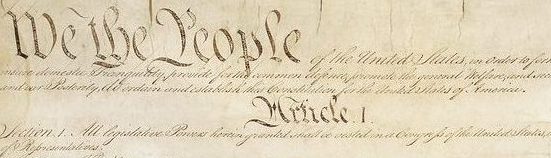 We the People of the United States, in Order to form
insure domestic Tranquility, provide for the common defence, promote the general Welfare, and secu
and our Posterity, do ordain and establish this Constitution for the United States of America.
Article. I.
Section. 1. All legislative Powers herein granted shall be vested in a Congress of the United States,
of Representatives.